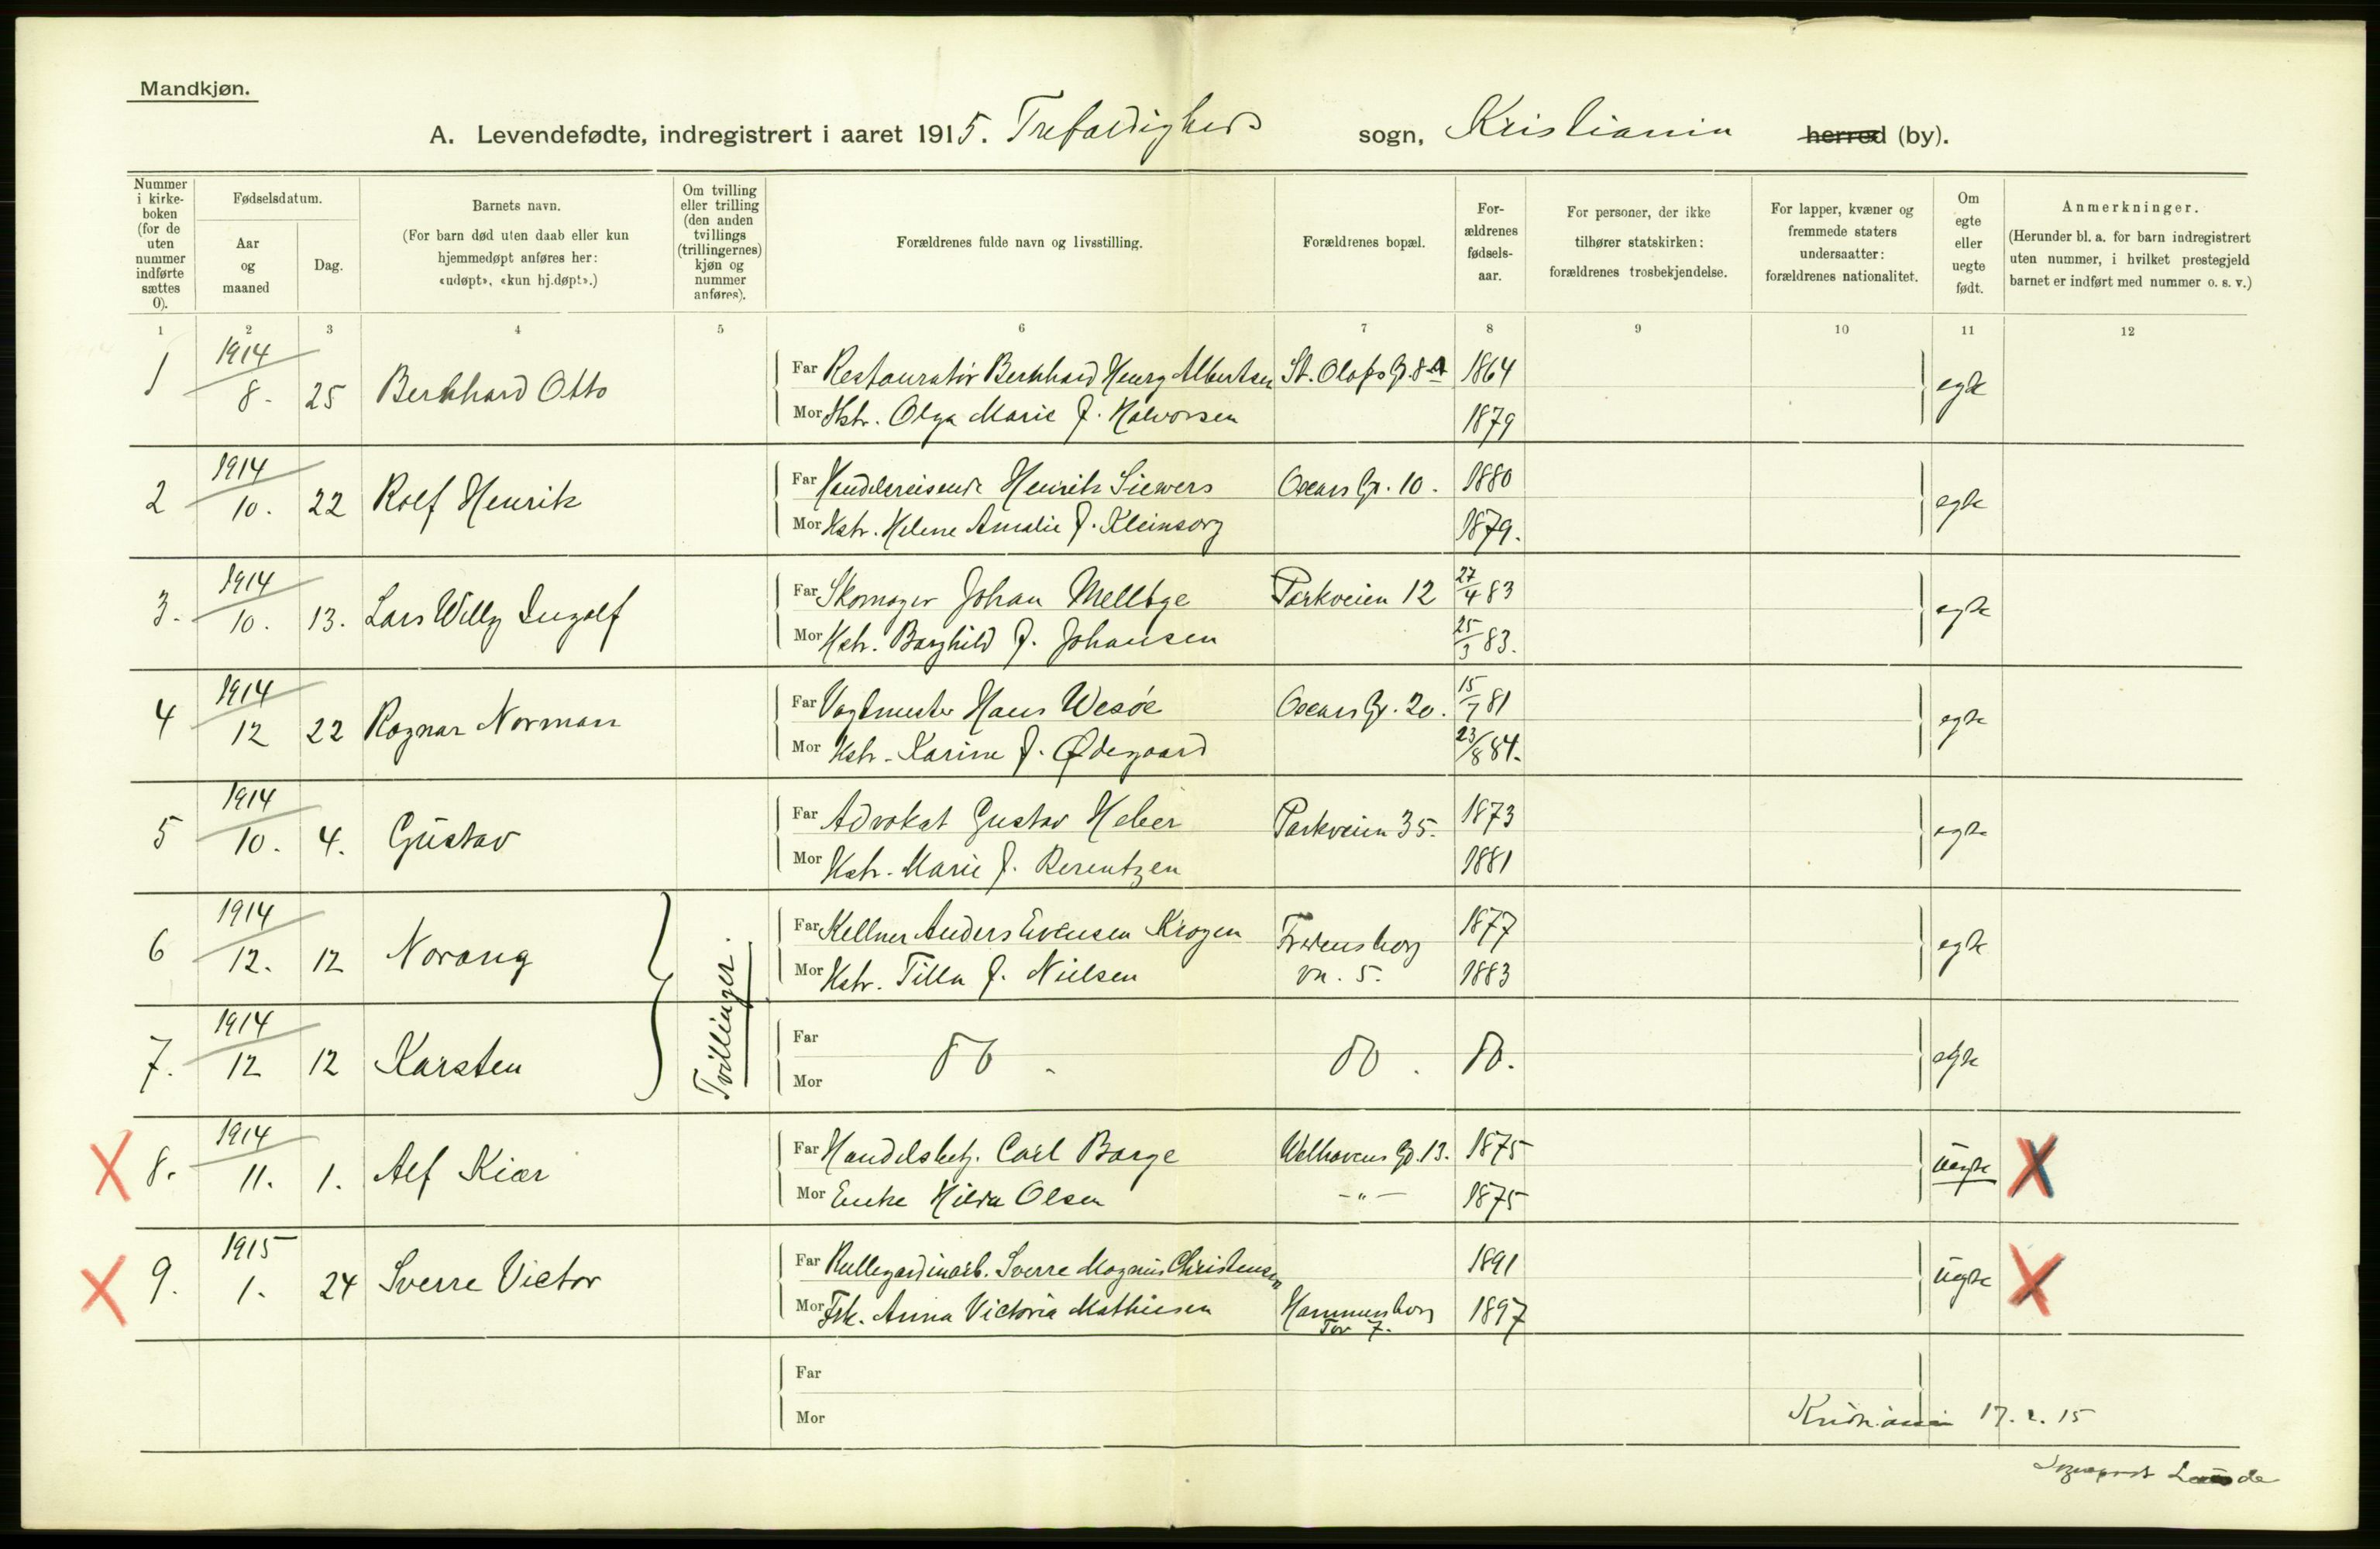 Mandkjøn.
A. Levendefødte, indregistrert i aaret 1915. Trefoldigheds sogn, Kristiania herred (by).
Nummer i kirke-boken (for de uten nummer indførte sættes 0).
Fødselsdatum.
Aar og maaned
Dag.
Barnets navn.
(For barn død uten daab eller kun hjemmedøpt anføres her: «udøpt», «kun hj.døpt».)
Om tvilling eller trilling (den anden tvillings (trillingernes) kjøn og nummer anføres).
Forældrenes fulde navn og livsstilling.
Forældrenes bopæl.
For-ældrenes fødsels-aar.
For personer, der ikke tilhører statskirken: forældrenes trosbekjendelse.
For lapper, kvæner og fremmede staters undersaatter: forældrenes nationalitet.
Om egte eller uegte født.
Anmerkninger.
(Herunder bl. a. for barn indregistrert uten nummer, i hvilket prestegjeld barnet er indført med nummer o. s. v.)
1 2 3 4 5 6 7 8 9 10 11 12
1 1914 8. 25 Bernhard Otto Far Restauratør Bernhard Henry Albertsen St. Olafs Gd. 8 A 1864 egte
Mor Hstr. Olga Marie f. Halvorsen 1879
2 1914 10. 22 Rolf Henrik Far Handelsreisende Henrik Siewers Oscars Gr. 10. 1880 egte
Mor Hstr. Helene Amalie f. Kleinsorg 1879.
3. 1914 10. 13. Lars Willy Ingolf Far Skomager Johan Mellbye Parkveien 12 27/4 83 egte
Mor Hstr. Borghild f. Johansen 25/3 83.
4 1914 12 22 Ragnar Norman Far Vagtmester Hans Wesøe Oscars Gr. 20. 15/7 81 egte
Mor Hstr. Karine f. Ødegaard 23/8 84.
5 1914 10. 4. Gustav Far Advokat Gustav Heber Parkveien 35. 1873 egte
Mor Hstr. Marie f. Berentzen 1881
6 1914 12. 12 Norang Tvillinger. Far Kellner Anders Evensen Krogen Fredensborg 1877 egte
Mor Hstr. Tilla f. Nielsen vn. 5. 1883
7. 1914 12 12 Karsten Far Do Do. Do. egte
Mor
8. 1914 11. 1. Alf Kiær Far Handelsbetj. Carl Borge Welhavens Gd. 13. 1875 uegte
Mor Enke Hilda Olsen -"- 1875
9. 1915 1. 24 Sverre Victor Far Rullegardinarb. Sverre Magnus Christensen 1891 uegte
Mor Frk. Anna Victoria Mathiesen Hammersborg Tor 7. 1897
Far
Mor
Kristiania 17.2.15
Sogneprest